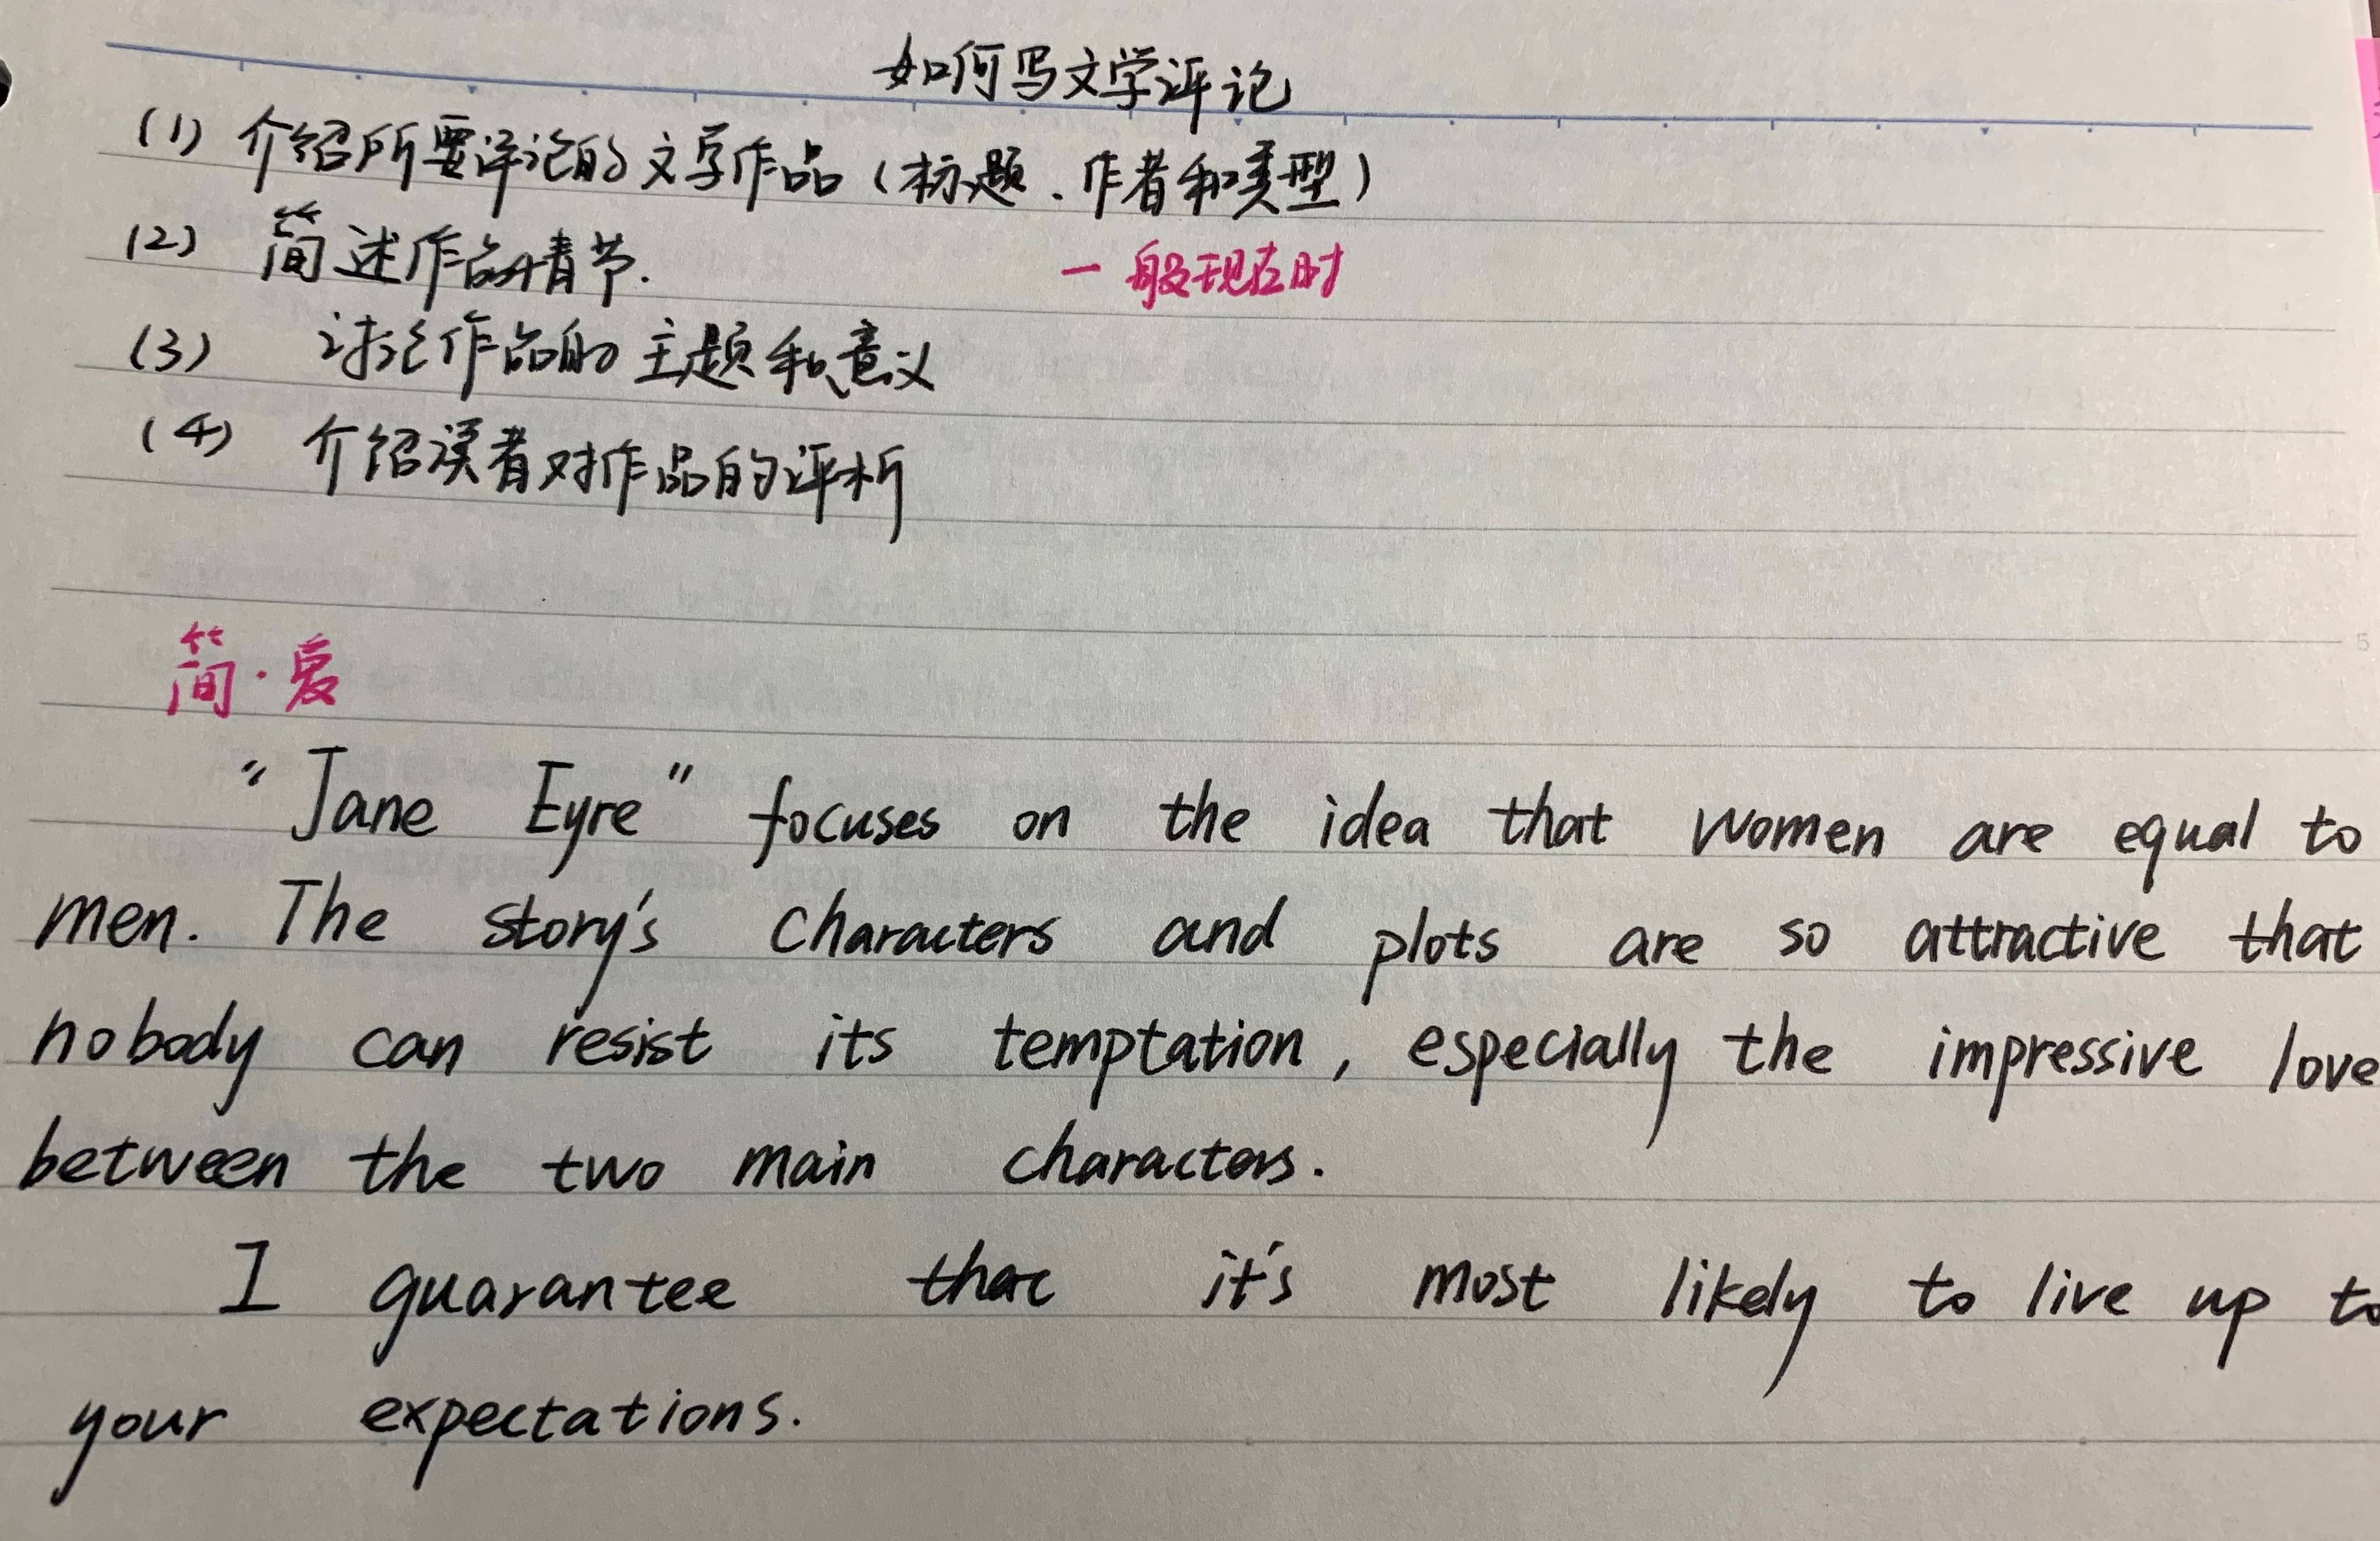 如何写文学评论
(1) 介绍所要评论的文学作品（标题、作者和类型）
(2) 简述作品情节. 一般现在时
(3) 讨论作品的主题和意义
(4) 介绍读者对作品的评析
简·爱
"Jane Eyre" focuses on the idea that women are equal to
men. The story's characters and plots are so attractive that
nobody can resist its temptation, especially the impressive love
between the two main characters.
I guarantee that it's most likely to live up to
your expectations.